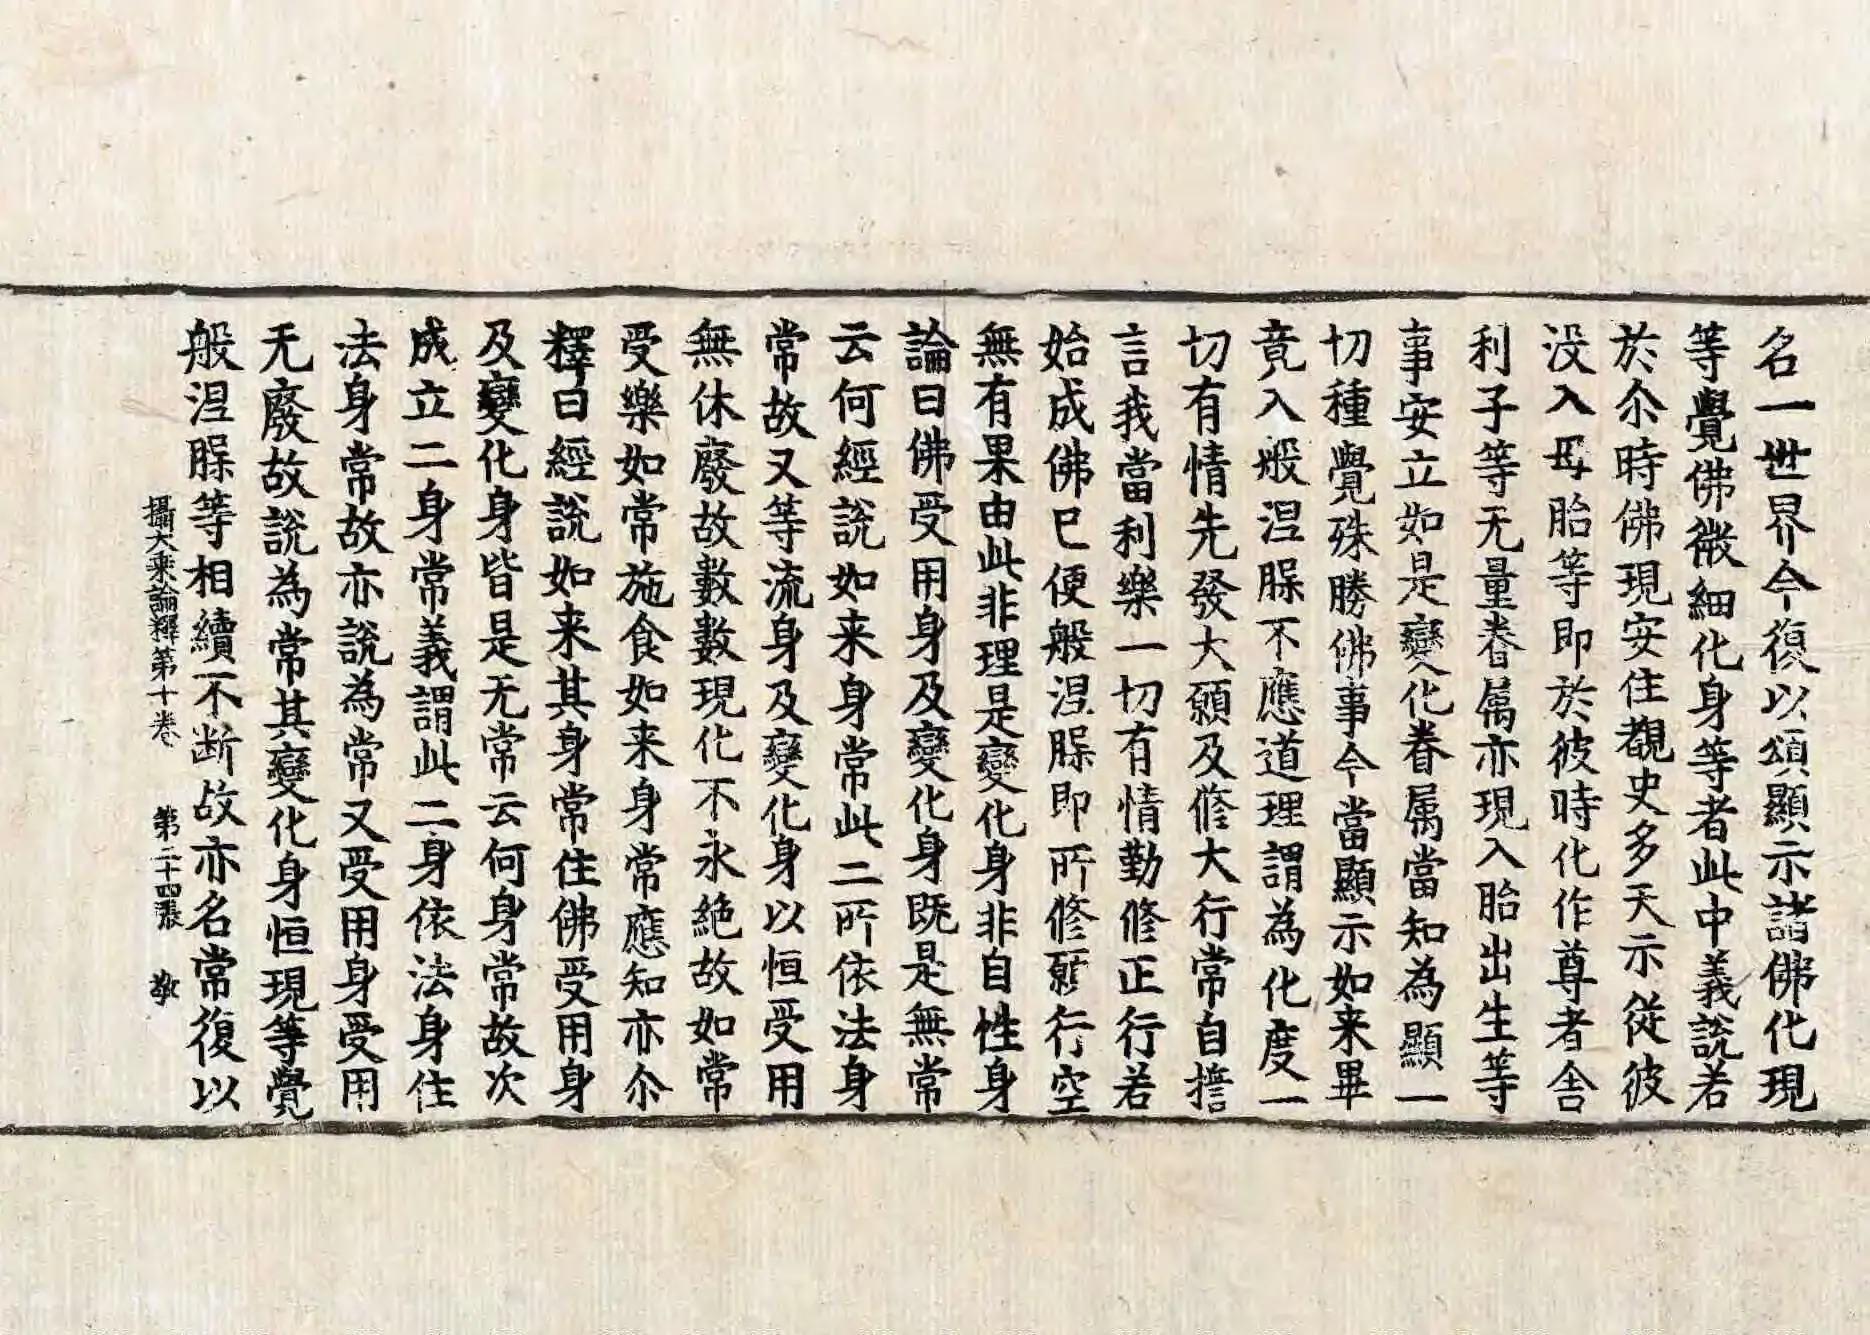 名一世界今復以頌顯示諸佛化現
等覺佛微細化身等者此中義說若
於尒時佛現安住覩史多天示從彼
没入母胎等即於彼時化作尊者舍
利子等无量眷属亦現入胎出生等
事安立如是變化眷属當知為顯一
切種覺殊勝佛事今當顯示如来畢
竟入般涅𦜝不應道理謂為化度一
切有情先發大願及修大行常自誓
言我當利樂一切有情勤修正行若
始成佛已便般涅𦜝即所修願行空
無有果由此非理是變化身非自性身
論曰佛受用身及變化身既是無常
云何經說如来身常此二所依法身
常故又等流身及變化身以恒受用
無休廢故數數現化不永絕故如常
受樂如常施食如来身常應知亦尒
釋曰經說如来其身常住佛受用身
及變化身皆是无常云何身常故次
成立二身常義謂此二身依法身住
法身常故亦說為常又受用身受用
无廢故說為常其變化身恒現等覺
般涅𦜝等相續不断故亦名常復以
攝大乘論釋第十卷 第二十四張 敬